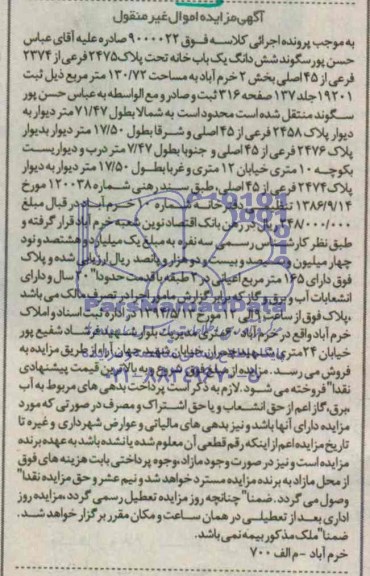 آگهی مزایده اموال غیر منقول
به موجب پرونده اجرائی کلاسه فوق ۹۰۰۰۰۲۲ صادره علیه آقای عباس
حسن پور سگوند شش دانگ یک باب خانه تحت پلاک ۲۴۷۵ فرعی از ۲۳۷۴
فرعی از ۴۵ اصلی بخش ۲ خرم آباد به مساحت ۱۳۰/۷۲ متر مربع ذیل ثبت
۱۹۲۰۱ جلد ۱۳۷ صفحه ۳۱۶ ثبت و صادر و مع الواسطه به عباس حسن پور
سگوند منتقل شده است محدود است به شمالا بطول ۷۱/۴۷ متر دیوار به
دیوار پلاک ۲۴۵۸ فرعی از ۴۵ اصلی و شرقا بطول ۱۷/۵۰ متر دیوار بدیوار
پلاک ۲۴۷۶ فرعی از ۴۵ اصلی و جنوبا بطول ۷/۴۷ متر درب و دیواریست
بکوچه ۱۰ متری خیابان ۱۲ متری و غربا بطول ۱۷/۵۰ متر دیوار به دیوار
پلاک ۲۴۷۴ فرعی از ۴۵ اصلی، طبق سند رهنی شماره ۱۲۰۰۳۸ مورخ
۱۳۸۶/۹/۱۴ تنظیمی خرم آباد در قبال مبلغ
۲۴۸/۰۰۰/۰۰۰ ریال در رهن بانک اقتصاد نوین شعبه خرم آباد قرار گرفته و
طبق نظر کارشناس رسمی سه نفره به مبلغ یک میلیارد و هشتصد و نود
چهار میلیون و سیصد و بیست و دو هزار و پانصد ریال ارزیابی شده و پلاک
فوق دارای ۱۶۵ متر مربع اعیانی در ۲ طبقه با قدمت حدودا" ۲۰ سال و دارای
انشعابات آب و برق و گاز که برابر گزارش مامور اجرا در تصرف مالک می باشد
،پلاک فوق از ساعت ۹ الی ۱۲ مورخ در اداره ثبت اسناد و املاک
خرم آباد واقع در خرم آباد بلوار شهید فرشاد شفیع پور
خیابان ۲۴ متری از طریق مزایده به
فروش می رسد. مزایده از مبلغ فوق شروع و به بالاترین قیمت پیشنهادی
نقدا" فروخته می شود. لازم به ذکر است پرداخت بدهی های مربوط به آب
،برق، گاز اعم از حق انشعاب و یا حق اشتراک و مصرف در صورتی که مورد
مزایده دارای آنها باشد و نیز بدهی های مالیاتی و عوارض شهرداری و غیره تا
تاریخ مزایده اعم از اینکه رقم قطعی آن معلوم شده یا نشده باشد به عهده برنده
مزایده است و نیز در صورت وجود مازاد، وجوه پرداختی بابت هزینه های فوق
از محل مازاد به برنده مزایده مسترد خواهد شد و نیم عشر و حق مزایده نقدا"
وصول می گردد. ضمنا" چنانچه روز مزایده تعطیل رسمی گردد، مزایده روز
اداری بعد از تعطیلی در همان ساعت و مکان مقرر برگزار خواهد شد.
ضمنا" ملک مذکور بیمه نمی باشد.
خرم آباد - م الف ۷۰۰